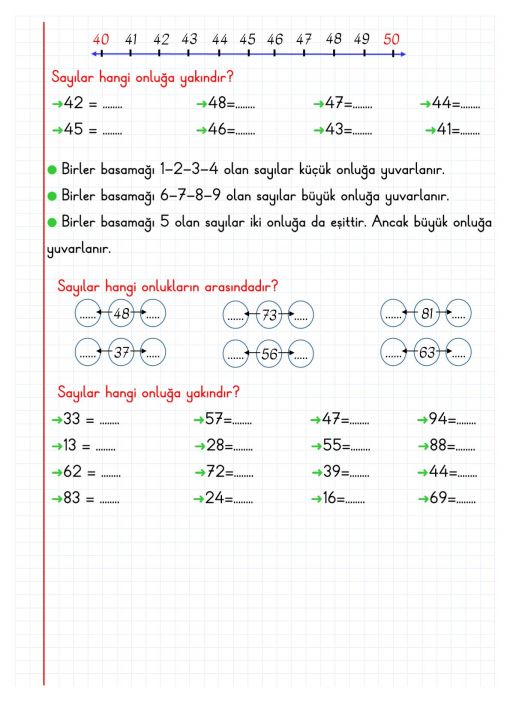 40 41 42 43 44 45 46 47 48 49 50
Sayılar hangi onluğa yakındır?
➔42 = ........ ➔48=........ ➔47=........ ➔44=........
➔45 = ........ ➔46=........ ➔43=........ ➔41=........
● Birler basamağı 1-2-3-4 olan sayılar küçük onluğa yuvarlanır.
● Birler basamağı 6-7-8-9 olan sayılar büyük onluğa yuvarlanır.
● Birler basamağı 5 olan sayılar iki onluğa da eşittir. Ancak büyük onluğa
yuvarlanır.
Sayılar hangi onlukların arasındadır?
...... 48 ..... ...... 73 ..... ...... 81 .....
...... 37 ..... ...... 56 ..... ...... 63 .....
Sayılar hangi onluğa yakındır?
➔33 = ........ ➔57=........ ➔47=........ ➔94=........
➔13 = ........ ➔28=........ ➔55=........ ➔88=........
➔62 = ........ ➔72=........ ➔39=........ ➔44=........
➔83 = ........ ➔24=........ ➔16=........ ➔69=........